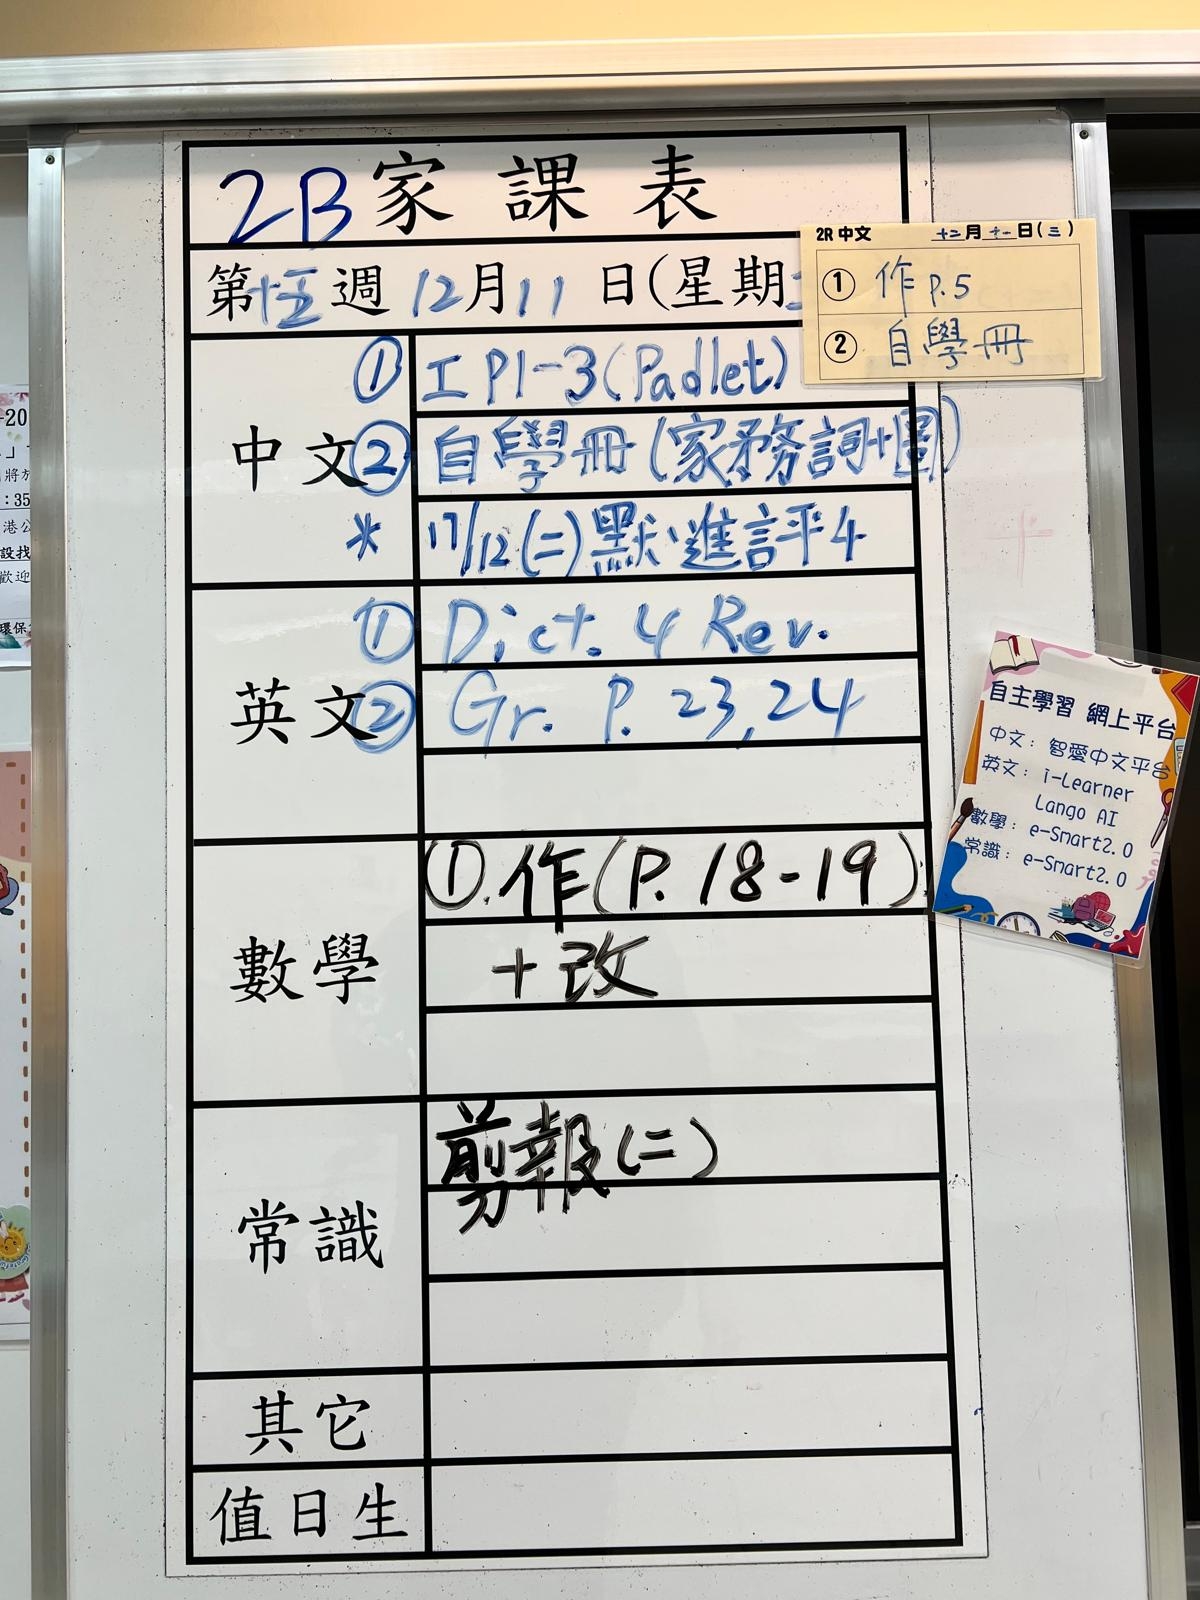 2B家課表
第十五週 12月11日(星期三
2R 中文 十二月十一日(三)
① 作 P.5
② 自學冊
中文
① 工 P1-3 (Padlet)
② 自學冊(家務詞+圖)
* 17/12(二)默、進評4
英文
① Dict. 4 Rev.
② Gr. P. 23,24
數學
①. 作(P. 18-19)
+改
常識
剪報(二)
其它
值日生
自主學習 網上平台
中文: 智愛中文平台
英文: i-Learner
Lango AI
數學: e-Smart2.0
常識: e-Smart2.0
-20
」
將於
:35
港公
設找
歡迎
環保